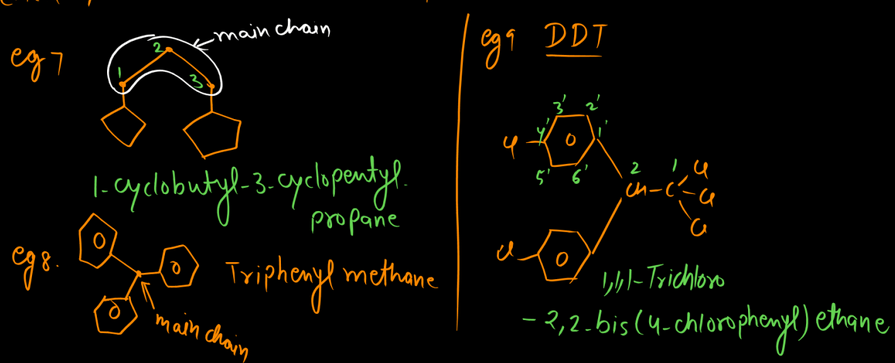 eg 7
main chain
2
1
3
1-cyclobutyl-3-cyclopentyl.
propane
eg 8.
Triphenyl methane
main chain
eg 9 DDT
3' 2'
Cl 4' 1'
5' 6'
2 1 Cl
CH-C-Cl
Cl
Cl
1,1,1-Trichloro
-2,2-bis(4-chlorophenyl) ethane